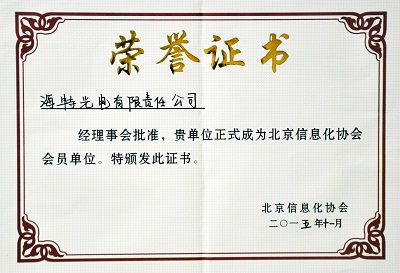 荣誉证书
海特光电有限责任公司
经理事会批准，贵单位正式成为北京信息化协会
会员单位。特颁发此证书。
北京信息化协会
二〇一五年十一月